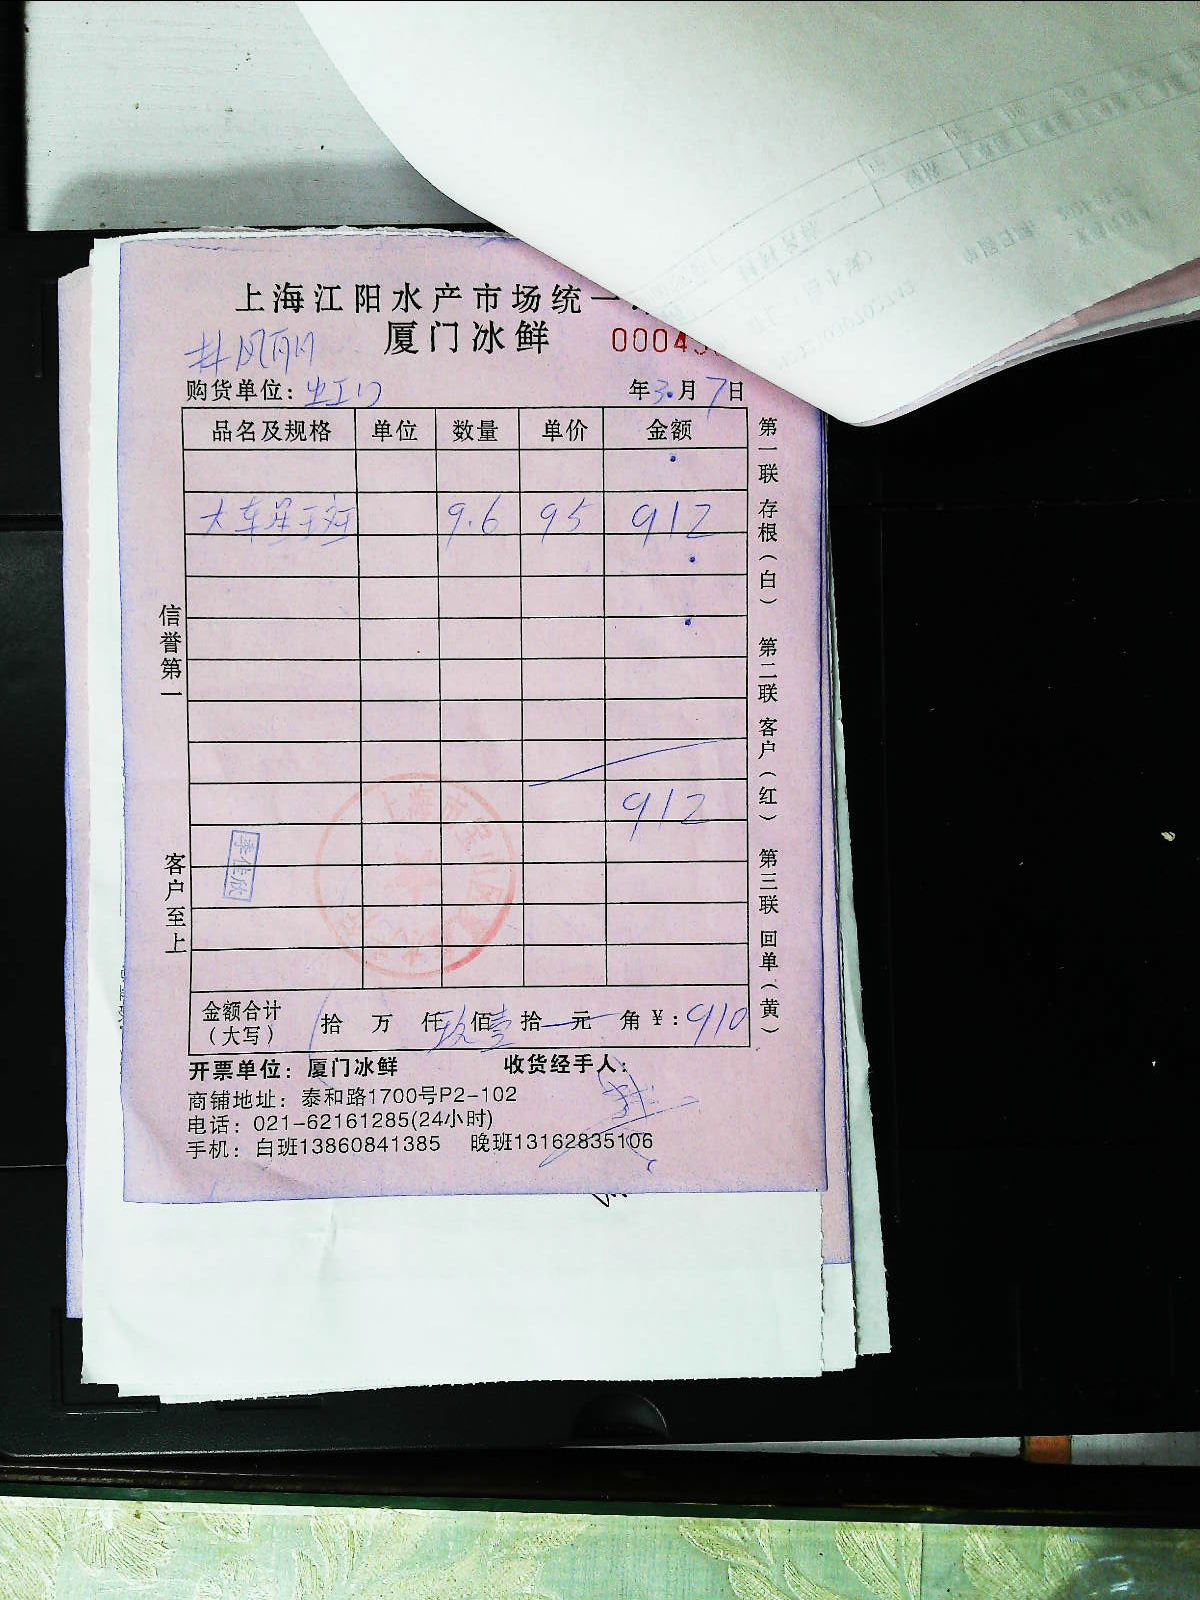 上海江阳水产市场统一
厦门冰鲜
00045
购货单位：
年3月7日
品名及规格 单位 数量 单价 金额
9.6 95 912
912
金额合计（大写） 拾 万 仟玖佰壹拾 元 角 ¥：910
开票单位：厦门冰鲜 收货经手人：
商铺地址：泰和路1700号P2-102
电话：021-62161285(24小时)
手机：白班13860841385 晚班13162835106
信誉第一
客户至上
第一联存根（白） 第二联客户（红） 第三联回单（黄）
李佳欣